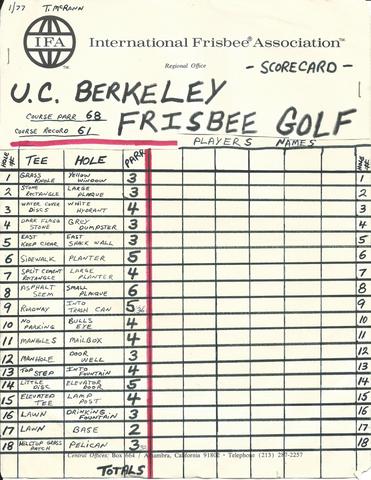 1/77 T. McRANN
IFA
International Frisbee® Association™
Regional Office
- SCORECARD -
U.C. BERKELEY
COURSE PARR 68
COURSE RECORD 61
FRISBEE GOLF
PLAYERS NAMES
HOLE # TEE HOLE PARR HOLE #
1 GRASS KNOLE YELLOW WINDOW 3 1
2 STONE RECTANGLE LARGE PLAQUE 3 2
3 WATER COVER DISCS WHITE HYDRANT 4 3
4 DARK FLAGG STONE GREY DUMPSTER 3 4
5 EAST KEEP CLEAR EAST SHACK WALL 3 5
6 SIDEWALK PLANTER 5 6
7 SPLIT CEMENT RETANGLE LARGE PLANTER 4 7
8 ASPHALT SEEM SMALL PLAQUE 6 8
9 ROADWAY INTO TRASH CAN 5 9
10 NO PARKING BULLS EYE 4 10
11 MANGLES MAILBOX 4 11
12 MANHOLE DOOR WELL 3 12
13 TOP STEP INTO FOUNTAIN 4 13
14 LITTLE DISC ELEVATOR DOOR 5 14
15 ELEVATED TEE LAMP POST 4 15
16 LAWN DRINKING FOUNTAIN 3 16
17 LAWN BASE 2 17
18 HILLTOP GRASS PATCH PELICAN 3 18
Central Offices: Box 664 / Alhambra, California 91802 · Telephone (213) 287-2257
TOTALS